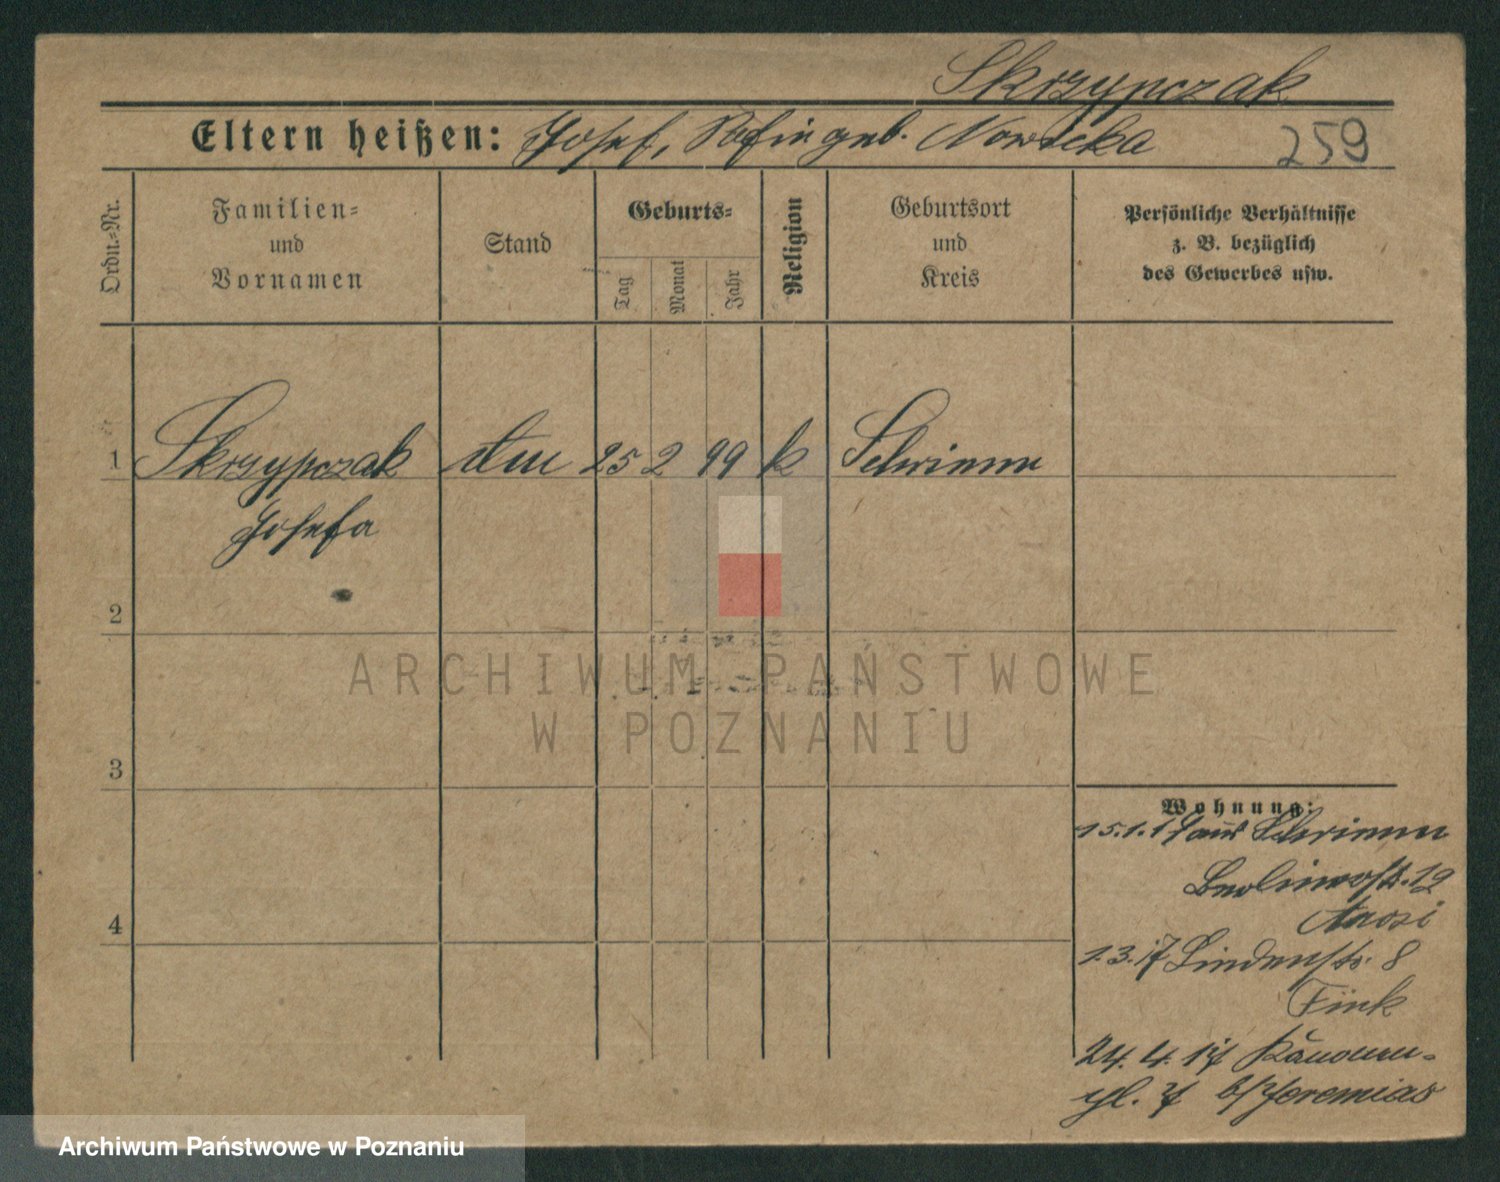 Skrzypczak
Eltern heißen: Josef, Sofie geb. Nowicka 259
Ordn.-Nr.
Familien-
und
Vornamen
Stand
Geburts-
Tag
Monat
Jahr
Religion
Geburtsort
und
Kreis
Persönliche Verhältnisse
z. B. bezüglich
des Gewerbes usw.
1 Skrzypczak 25 2 99 k Schrimm
Josefa
2
ARCHIWUM PAŃSTWOWE
W POZNANIU
3
Wohnung:
15.1.17 aus Schrimm
Berlinerstr. 19
4
1.3.17 Lindenstr. 8
Fink
24.4.17
pl. 7 b/Jeremias
Archiwum Państwowe w Poznaniu